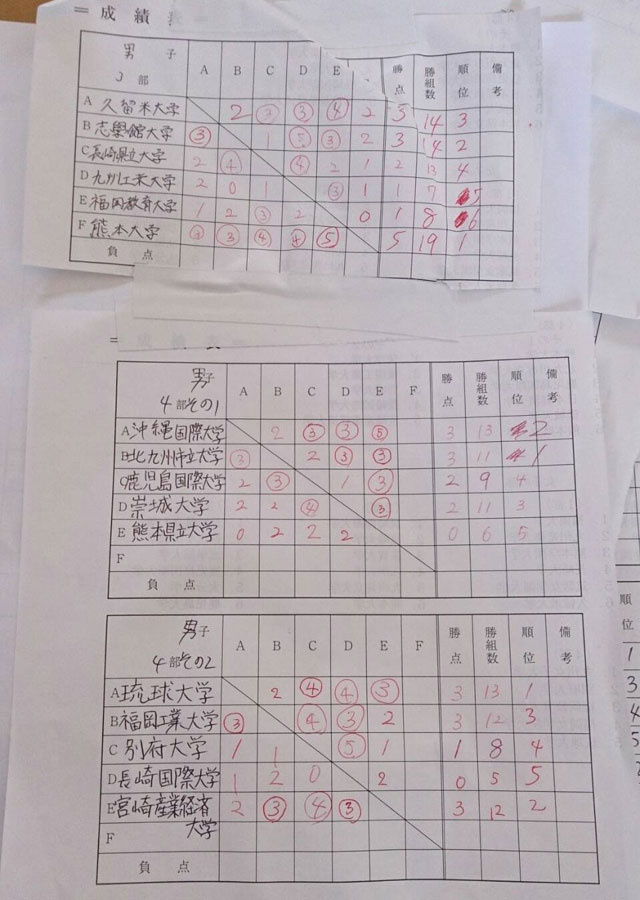 = 成績
男子 A B C D E 勝点 勝組数 順位 備考
3部
A 久留米大学 2 ③ ③ ④ 2 3 14 3
B 志學館大学 ③ 1 ⑤ ③ 2 3 14 2
C 長崎県立大学 2 ④ ④ 2 1 2 13 4
D 九州工業大学 2 0 1 ③ 1 1 7
E 福岡教育大学 1 2 ③ 2 0 1 8 6
F 熊本大学 ④ ③ ④ ④ ⑤ 5 19 1
負点
男子 A B C D E F 勝点 勝組数 順位 備考
4部その1
A 沖縄国際大学 2 ③ ③ ⑤ 3 13 2
B 北九州市立大学 ③ 2 ③ ③ 3 11 1
C 鹿児島国際大学 2 ③ 1 ③ 2 9 4
D 崇城大学 2 2 ④ ③ 2 11 3
E 熊本県立大学 0 2 2 2 0 6 5
F
負点
男子 A B C D E F 勝点 勝組数 順位 備考
4部その2
A 琉球大学 2 ④ ④ ③ 3 13 1
B 福岡工業大学 ③ ④ ③ 2 3 12 3
C 別府大学 1 1 ⑤ 1 1 8 4
D 長崎国際大学 1 2 0 2 0 5 5
E 宮崎産業経営大学 2 ③ ④ ③ 3 12 2
F
負点
順位
1
3
4
5